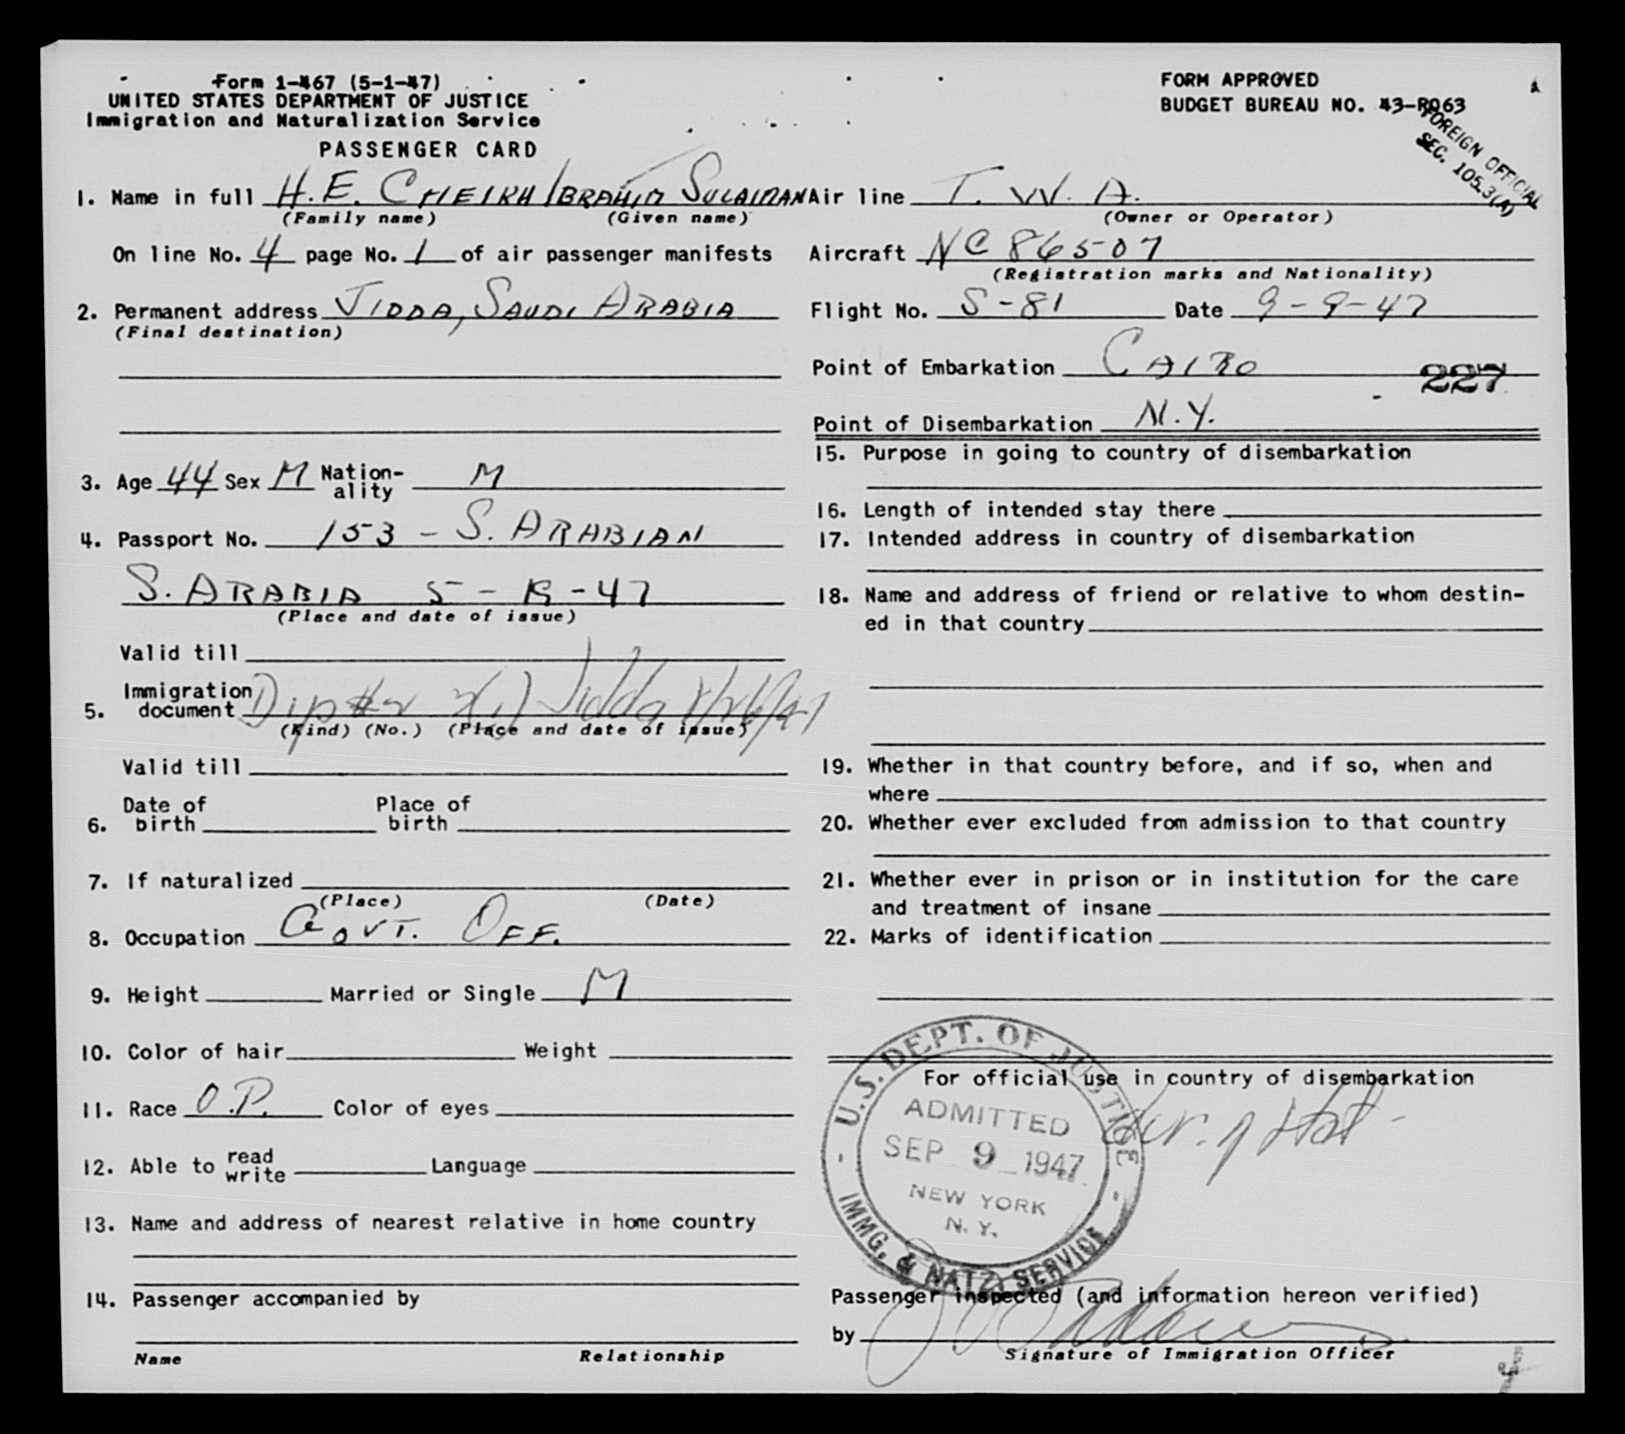 Form I-467 (5-1-47)
UNITED STATES DEPARTMENT OF JUSTICE
Immigration and Naturalization Service
PASSENGER CARD
FORM APPROVED
BUDGET BUREAU NO. 43-R063
FOREIGN OFFICIAL
SEC. 105.3(A)
1. Name in full H.E. CHEIKH IBRAHIM SULAIMAN
(Family name) (Given name)
On line No. 4 page No. 1 of air passenger manifests
2. Permanent address JIDDA, SAUDI ARABIA
(Final destination)
3. Age 44 Sex M Nation-
ality M
4. Passport No. 153 - S. ARABIAN
S. ARABIA 5 - -47
(Place and date of issue)
Valid till
5. Immigration
document Dip Jidda /26/47
(Kind) (No.) (Place and date of issue)
Valid till
6. Date of
birth
Place of
birth
7. If naturalized
(Place) (Date)
8. Occupation GOVT. OFF.
9. Height Married or Single M
10. Color of hair Weight
11. Race O.P. Color of eyes
12. Able to read
write Language
13. Name and address of nearest relative in home country
14. Passenger accompanied by
Name Relationship
Air line T. W. A.
(Owner or Operator)
Aircraft NC 86507
(Registration marks and Nationality)
Flight No. S-81 Date 9-9-47
Point of Embarkation CAIRO
227
Point of Disembarkation N.Y.
15. Purpose in going to country of disembarkation
16. Length of intended stay there
17. Intended address in country of disembarkation
18. Name and address of friend or relative to whom destin-
ed in that country
19. Whether in that country before, and if so, when and
where
20. Whether ever excluded from admission to that country
21. Whether ever in prison or in institution for the care
and treatment of insane
22. Marks of identification
For official use in country of disembarkation
U.S. DEPT. OF JUSTICE
ADMITTED
SEP 9 1947
NEW YORK
N. Y.
IMMG. & NATZ. SERVICE
Passenger inspected (and information hereon verified)
by
Signature of Immigration Officer